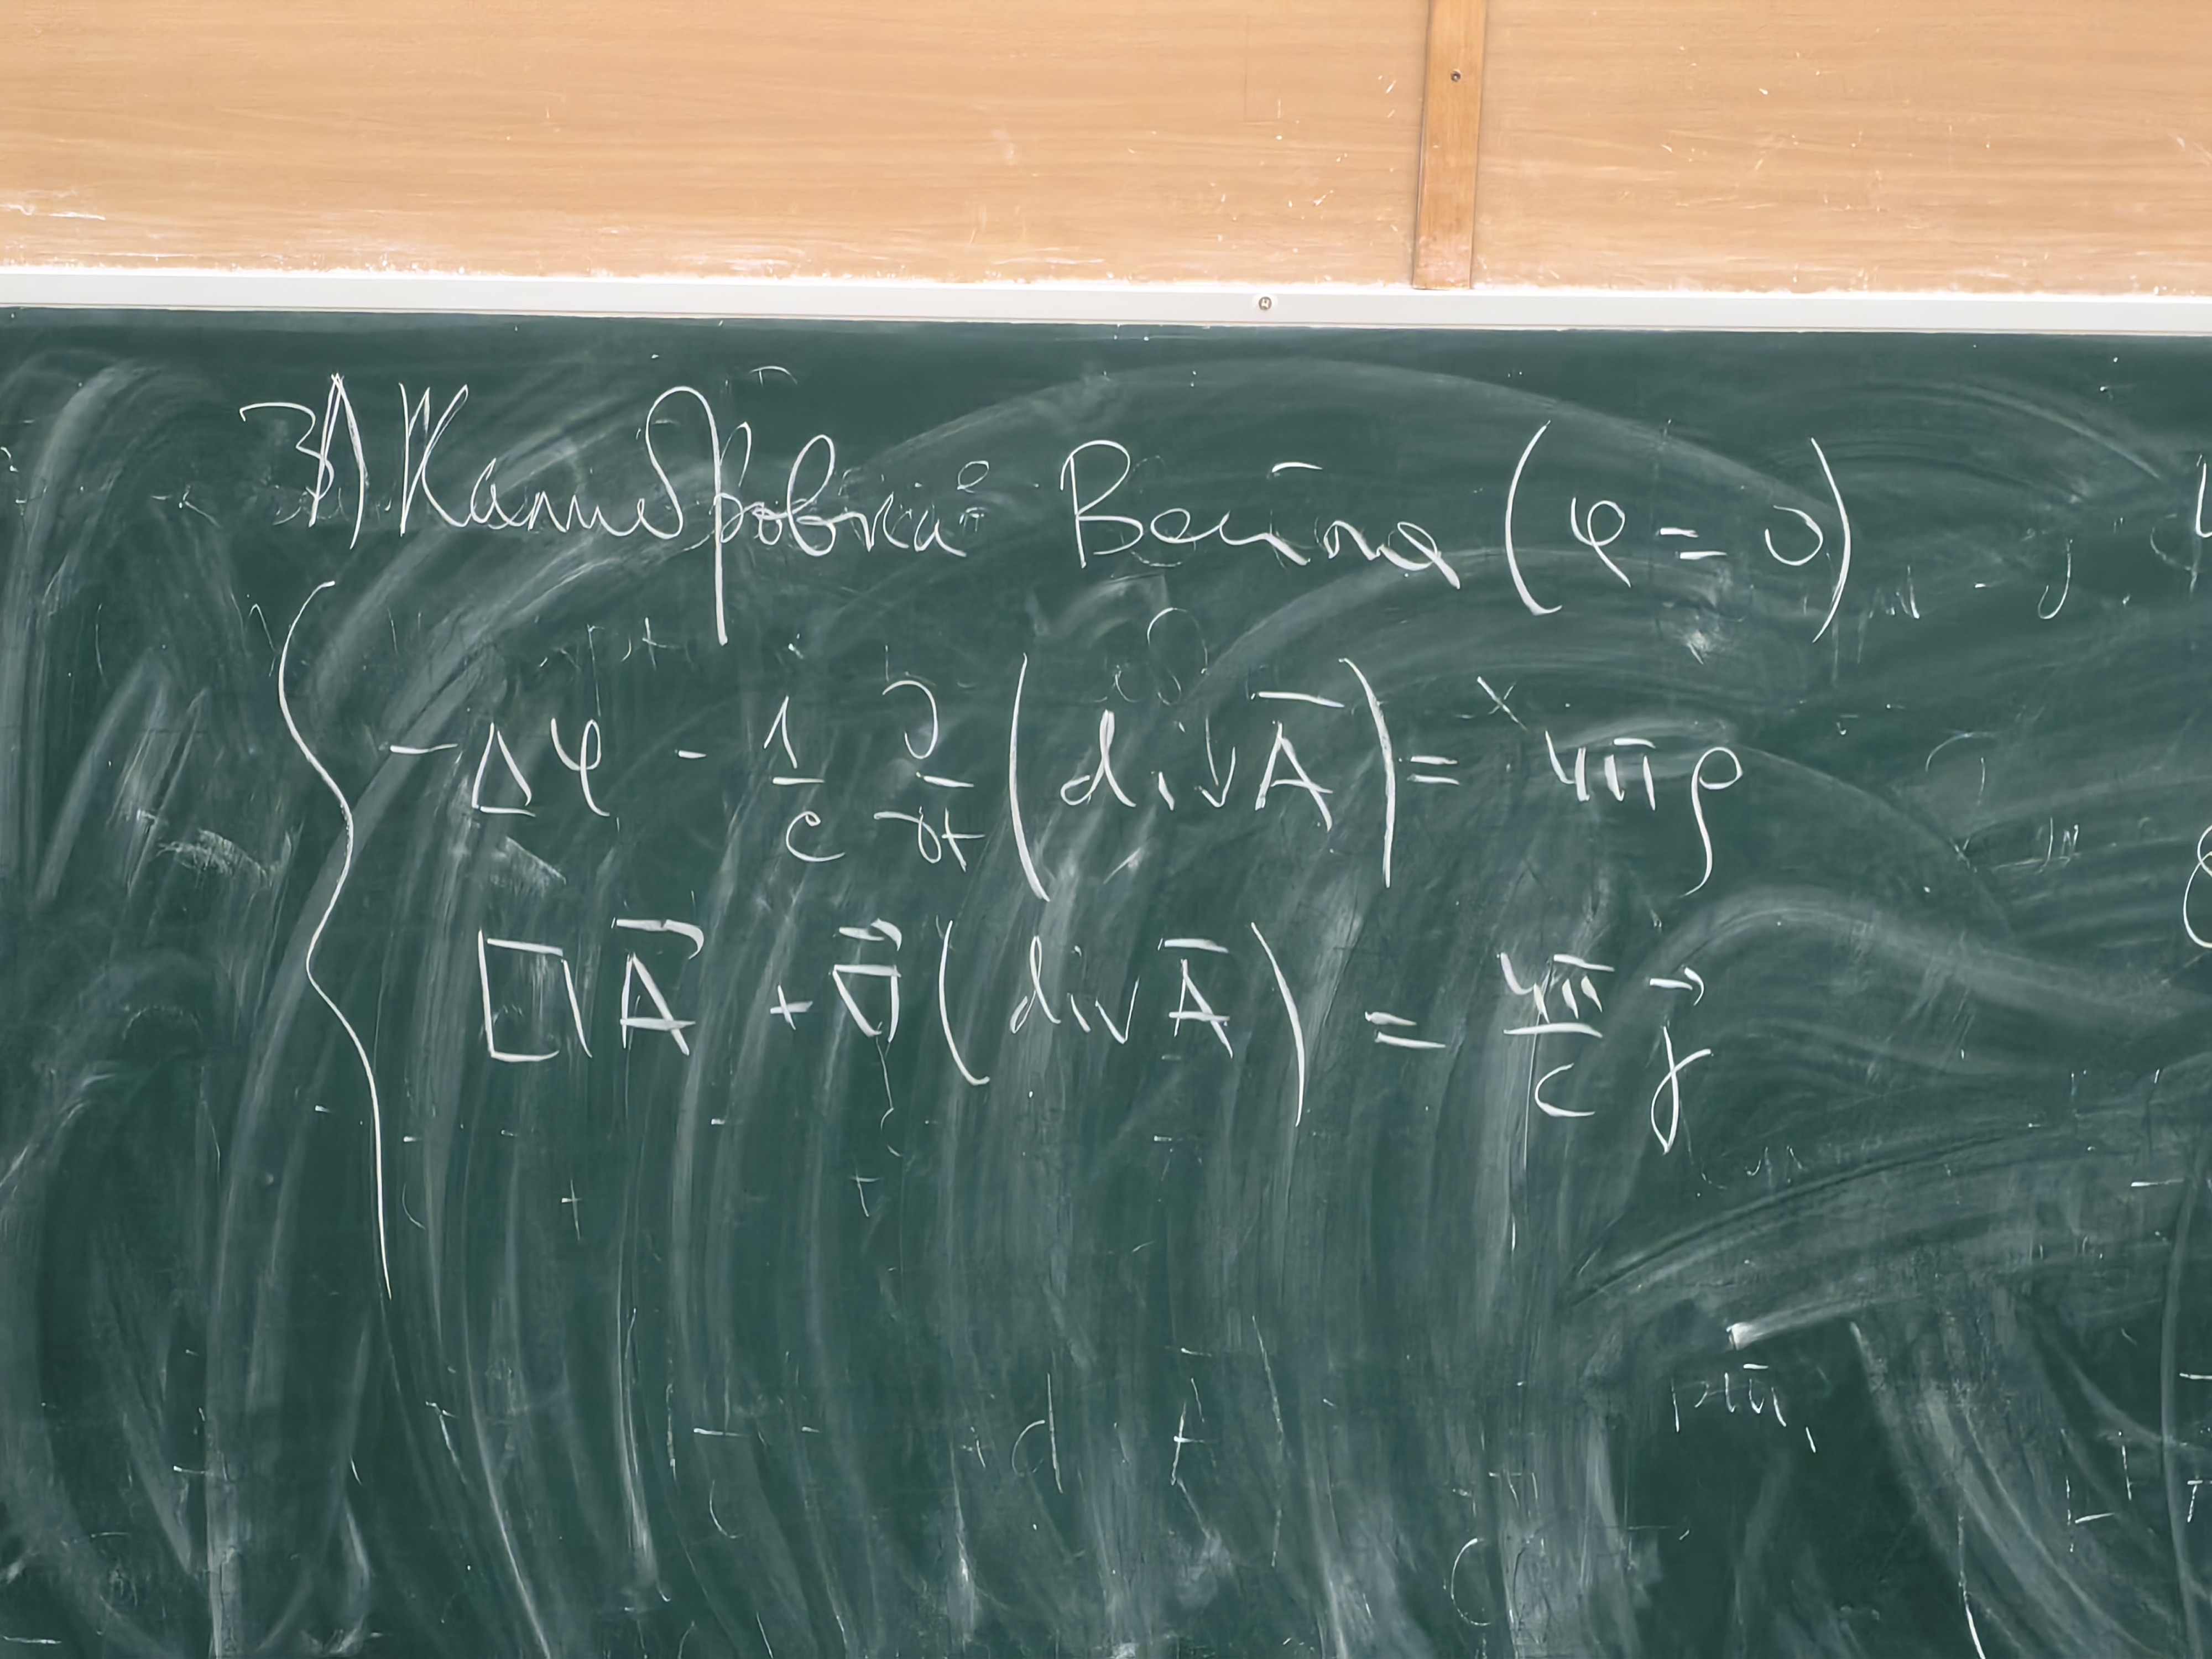 3) Калибровка Вейля (φ = 0)
-Δφ - 1/c ∂/∂t (div A̅) = 4πρ
□A⃗ + ∇⃗(div A̅) = 4π/c j⃗